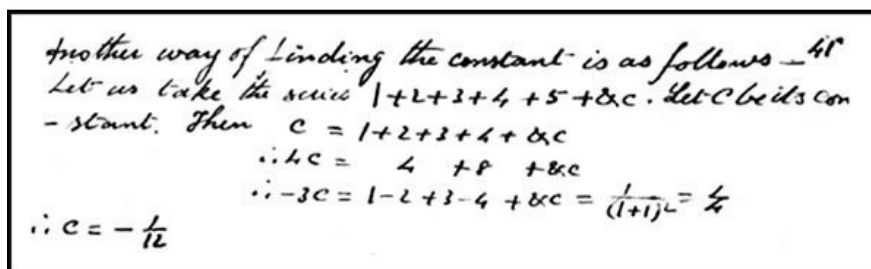 Another way of finding the constant is as follows — 41
Let us take the series 1+2+3+4+5+&c. Let C be its con
- stant. Then C = 1+2+3+4+&c
∴ 4C = 4 +8 +&c
∴ -3C = 1-2+3-4+&c = 1/(1+1)² = 1/4
∴ C = - 1/12